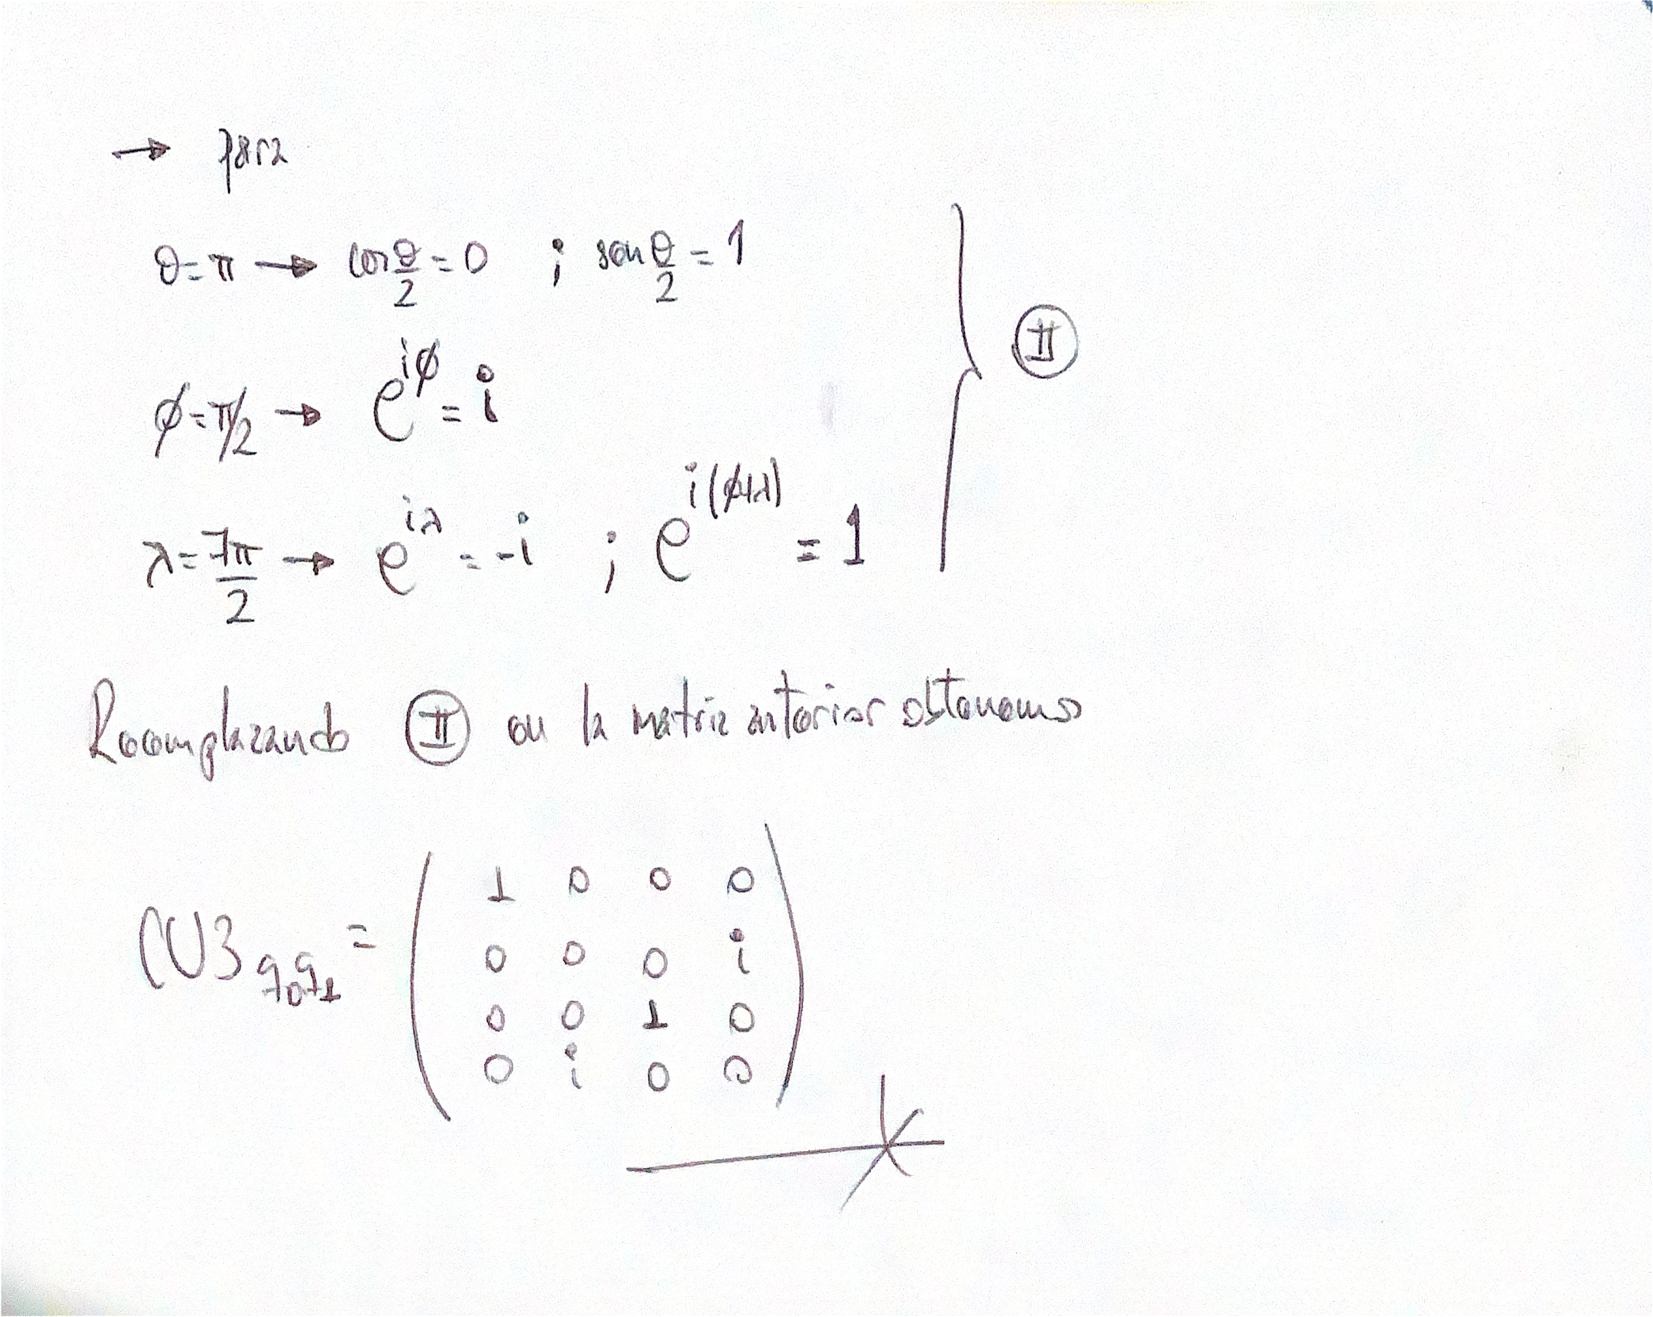 → para
θ=π → cos θ/2 = 0 ; sen θ/2 = 1
ϕ=π/2 → e^{iϕ} = i
λ=7π/2 → e^{iλ} = -i ; e^{i(ϕ+λ)} = 1
II
Reemplazando II en la matriz anterior obtenemos
CU3_{q₀q₁} =
1 0 0 0
0 0 0 i
0 0 1 0
0 i 0 0